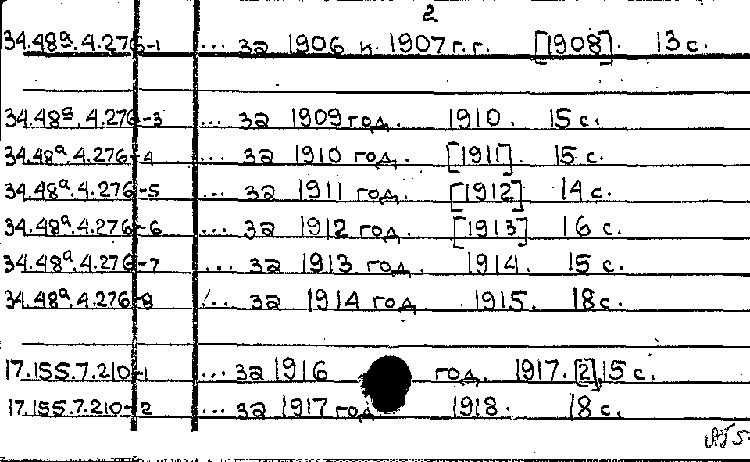 2
34.48а.4.276-1 ... за 1906 и 1907 г.г. [1908]. 13 с.
34.48а.4.276-3 ... за 1909 год. 1910. 15 с.
34.48а.4.276-4 ... за 1910 год. [1911]. 15 с.
34.48а.4.276-5 ... за 1911 год. [1912] 14 с.
34.48а.4.276-6 ... за 1912 год. [1913] 16 с.
34.48а.4.276-7 ... за 1913 год. 1914. 15 с.
34.48а.4.276-8 ... за 1914 год 1915. 18 с.
17.155.7.210-1 ... за 1916 год. 1917. [2], 15 с.
17.155.7.210-2 ... за 1917 год 1918. 18 с.